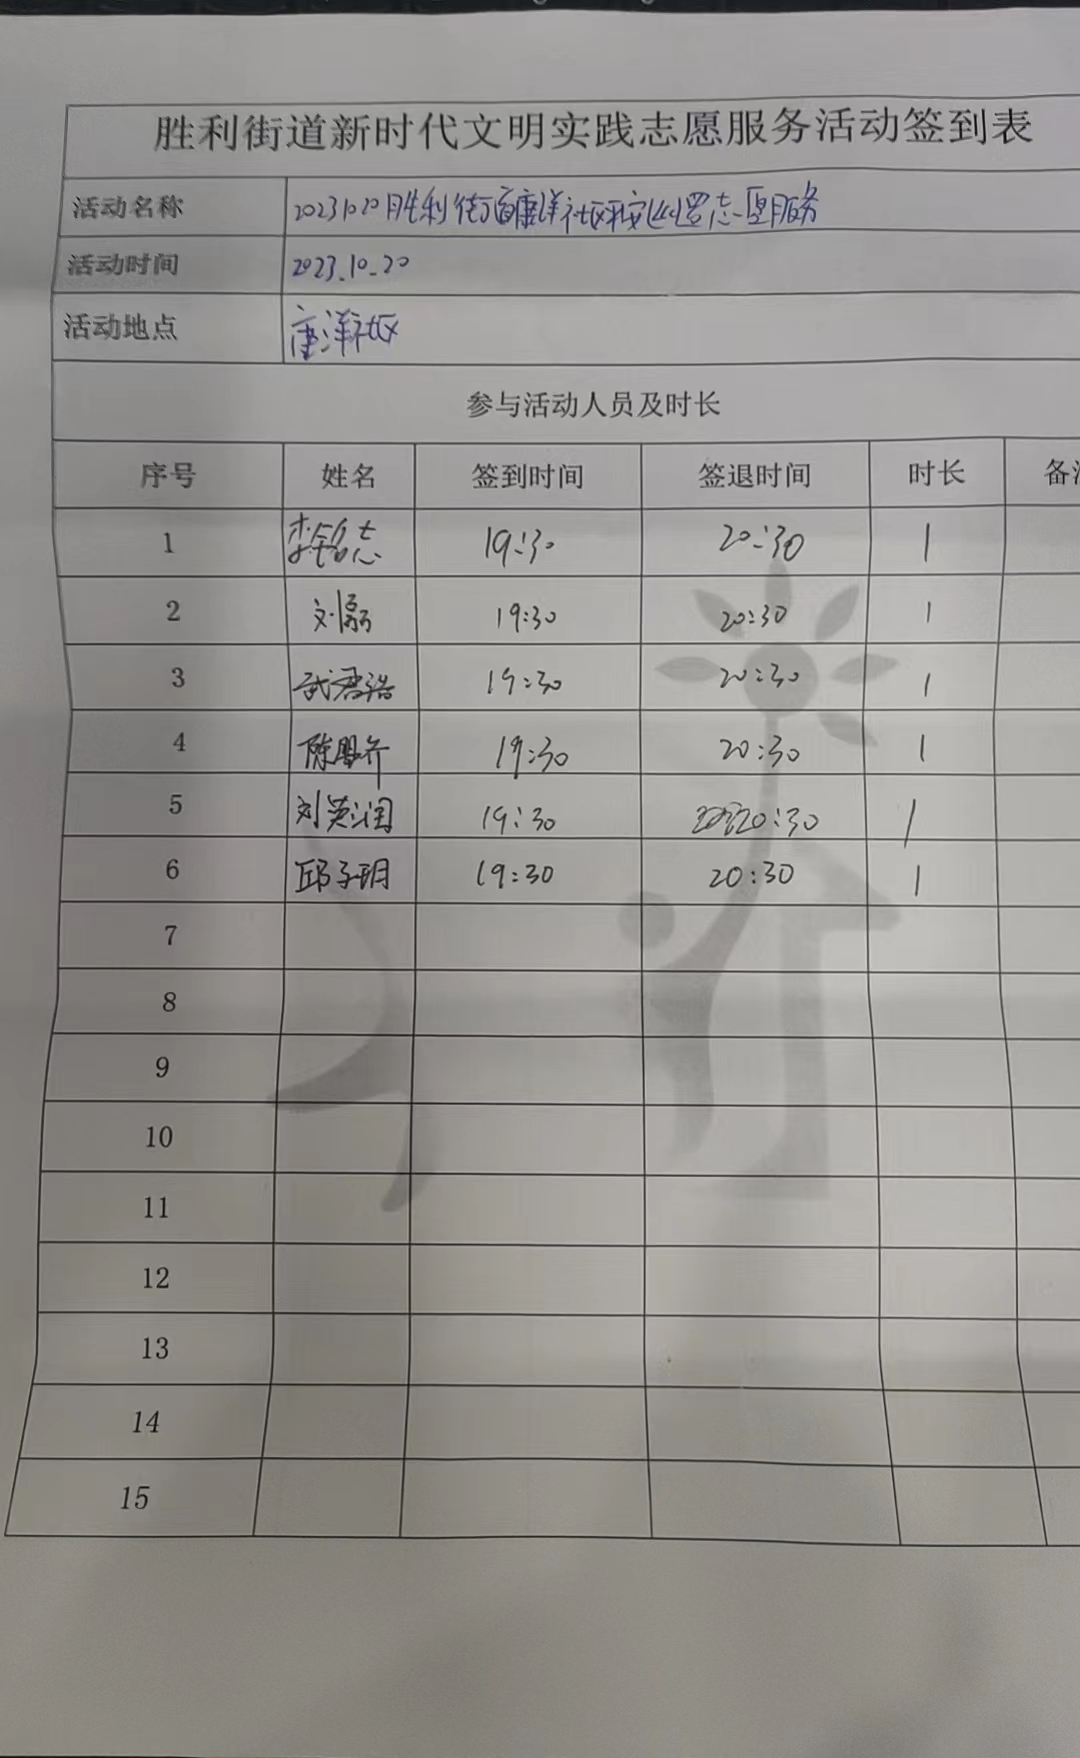 胜利街道新时代文明实践志愿服务活动签到表
活动名称 20231020胜利街道唐洋社区平安巡逻志愿服务
活动时间 2023.10.20
活动地点 唐洋社区
参与活动人员及时长
序号 姓名 签到时间 签退时间 时长 备
1 李铭志 19:30 20:30 1
2 刘磊 19:30 20:30 1
3 武君浩 19:30 20:30 1
4 陈 19:30 20:30 1
5 刘英润 19:30 20:30 1
6 邱子玥 19:30 20:30 1
7
8
9
10
11
12
13
14
15